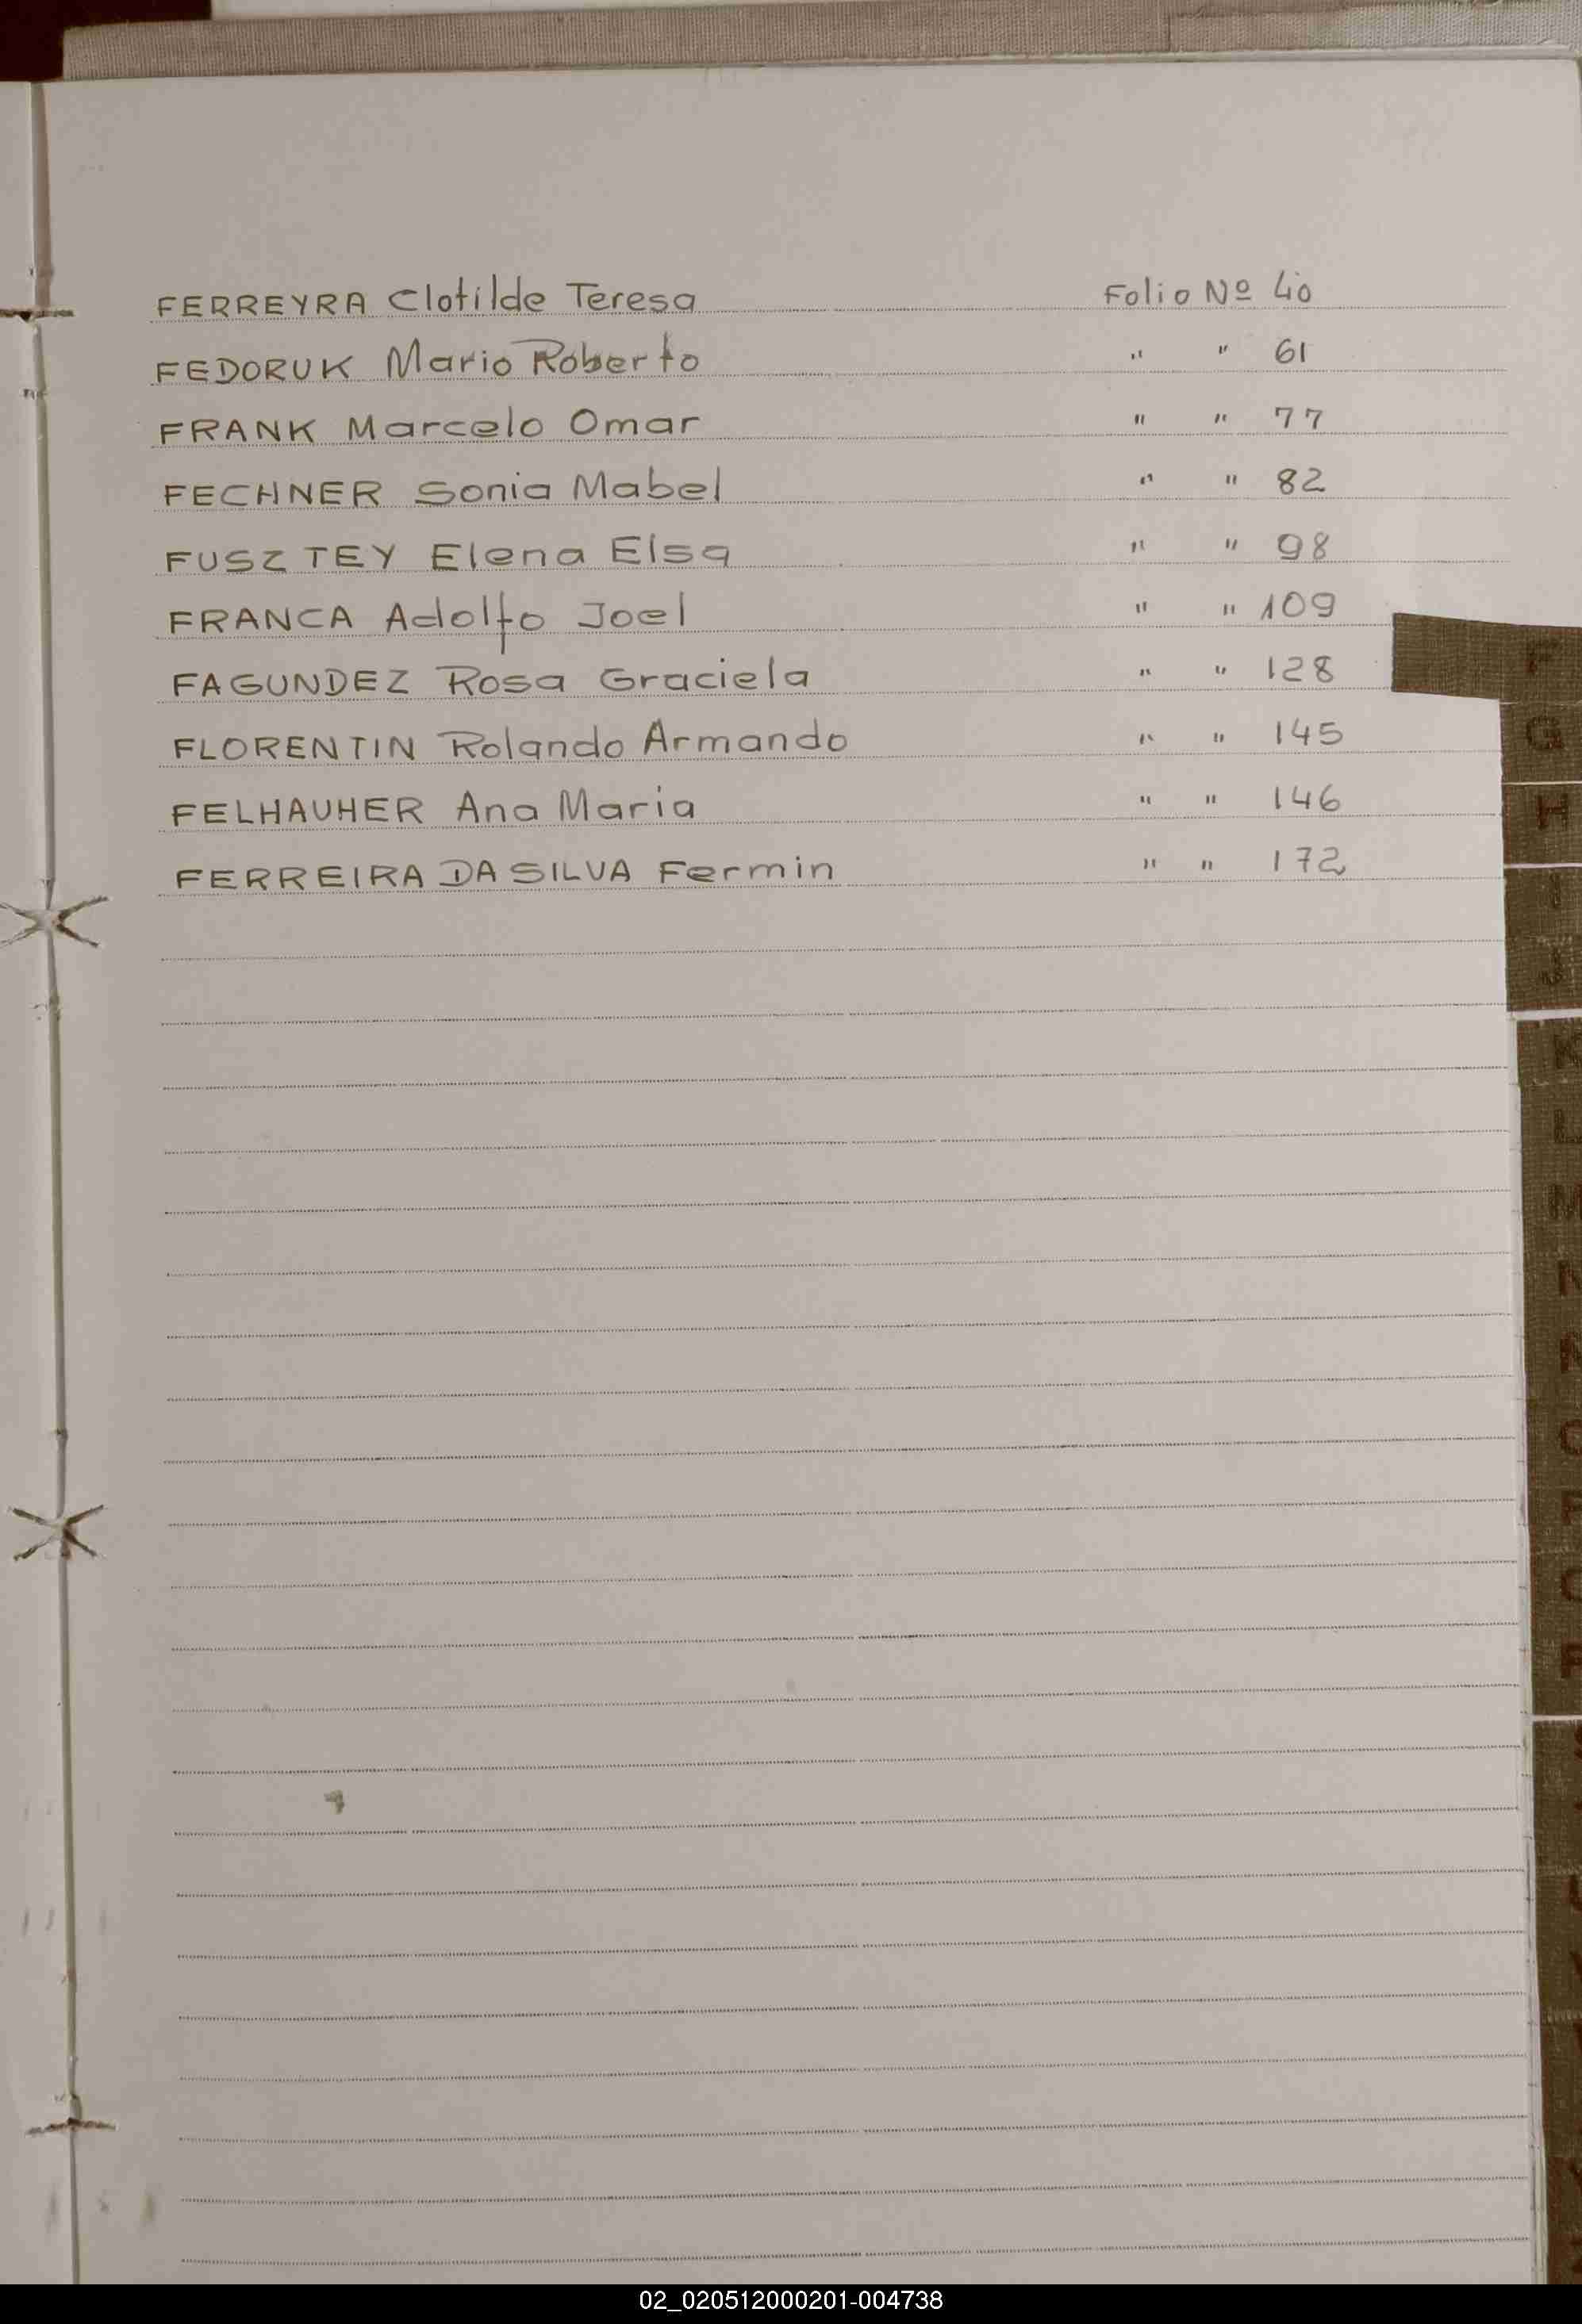 FERREYRA Clotilde Teresa Folio Nº 40
FEDORUK Mario Roberto " " 61
FRANK Marcelo Omar " " 77
FECHNER Sonia Mabel " " 82
FUSZTEY Elena Elsa " " 98
FRANCA Adolfo Joel " " 109
FAGUNDEZ Rosa Graciela " " 128
FLORENTIN Rolando Armando " " 145
FELHAUHER Ana Maria " " 146
FERREIRA DA SILVA Fermin " " 172
F
G
H
I
J
K
L
M
02_020512000201-004738